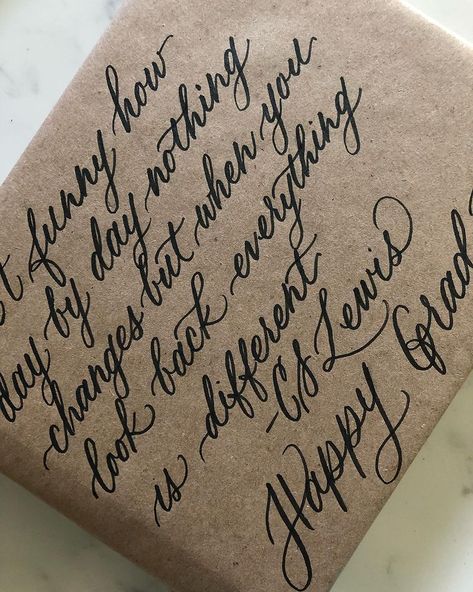 funny how
day by day nothing
changes but when you
look back everything
is different
-CS Lewis
Happy Grad